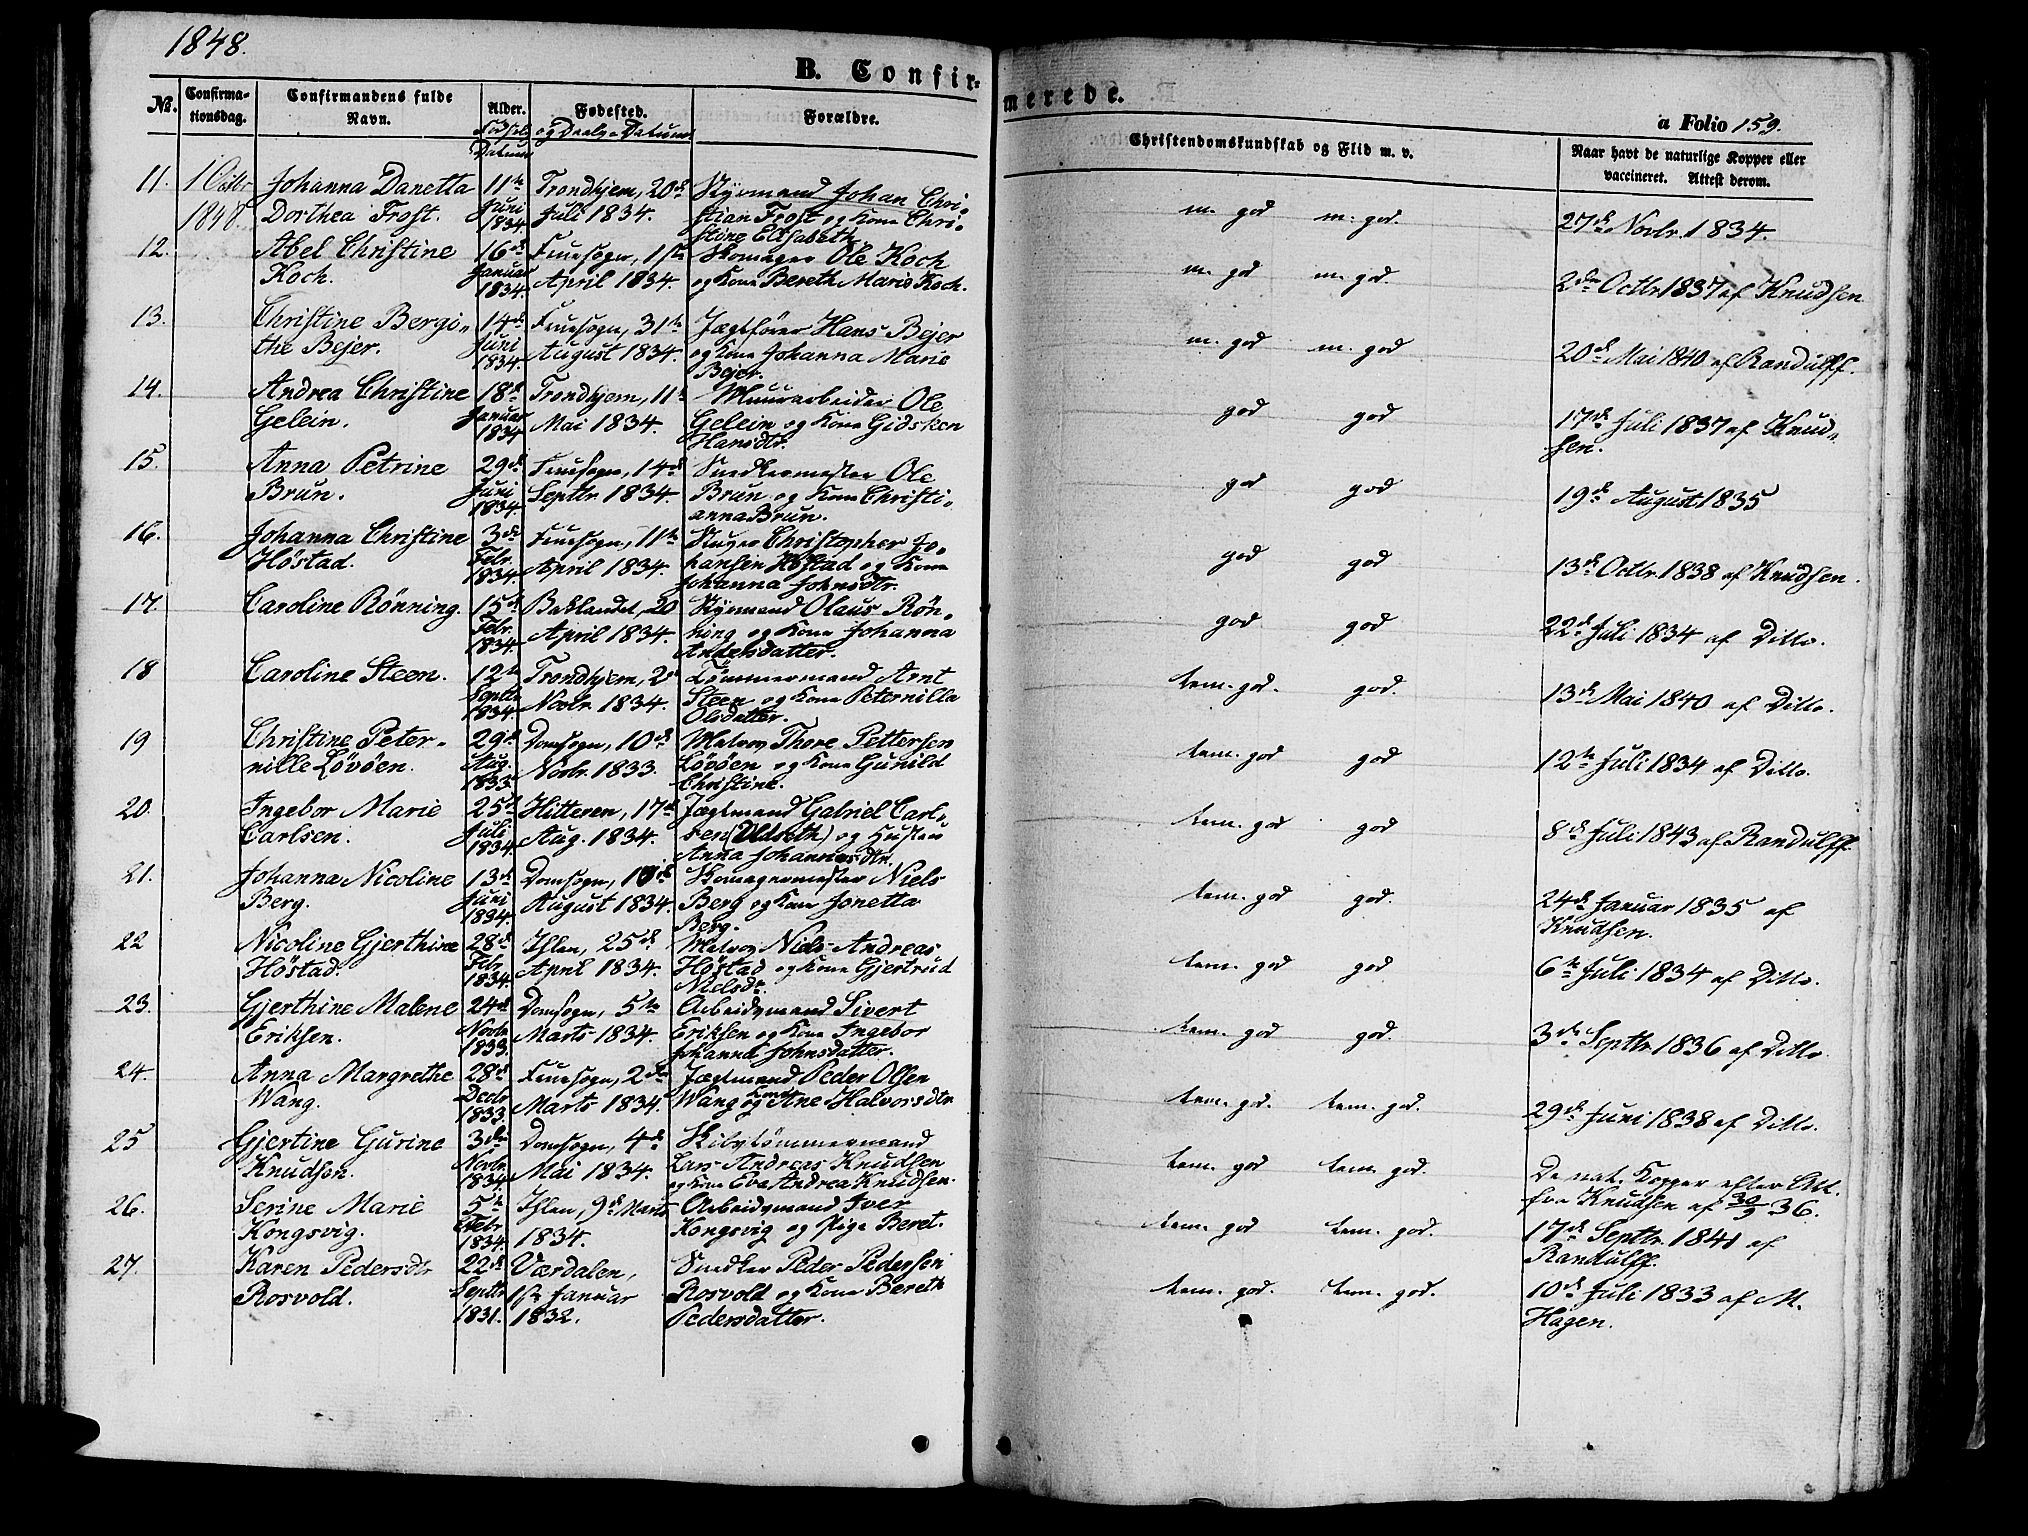 1848.
B. Confir-
merede.
a Folio 159.
No. Confirma-
tionsdag. Confirmandens fulde
Navn. Alder. Fødested. Forældre.
Fødsels og Daabs-Datum
Datum
Christendomskundskab og Flid m. v. Naar havt de naturlige Kopper eller
vaccineret. Attest derom.
11. 1 Octbr Johanna Danetta 11te Trondhjem, 20de Styrmand Johan Chri-
1848. Dorthea Frost. Juni Juli 1834. stian Frost og Kone Chri-
1834. stine Elisabeth
m. god m. god. 27de Novbr. 1834.
12. Abel Christine 16de Fruesogn, 1ste Skomager Ole Koch
Koch. Januar April 1834. og Kone Bereth Marie Koch.
1834.
m. god m. god. 2den Octbr. 1837 af Knudsen
13. Christine Bergi- 14de Fruesogn, 31te Jægtfører Hans Bejer
the Bejer. Juni August 1834. og Kone Johanna Marie
1834. Bejer.
m. god m. god 20de Mai 1840 af Randulff.
14. Andrea Christine 18de Trondhjem, 11te Muurarbeider Ole
Gelein. Januar Mai 1834. Gelein og Kone Gidsken
1834 Hansdtr.
god god 17de Juli 1837 af Knud-
sen.
15. Anna Petrine 29de Fruesogn, 14de Snedkermester Ole
Brun. Juni Septbr. 1834. Brun og Kone Christi-
1834. anna Brun.
god god 19de August 1835
16. Johanna Christine 3de Fruesogn, 11te Christopher Jo-
Höstad. Febr. April 1834. hansen Höstad og Kone
1834. Johanna Johnsdtr.
god god 13de Octbr. 1838 af Knudsen.
17. Caroline Rönning. 15de Baklandet, 20 Styrmand Olaus Rön-
Febr. April 1834. ning og Kone Johanna
1834. Andersdatter.
god god 22de Juli 1834 af Ditto.
18 Caroline Steen. 12te Trondhjem, 2de Tömmermand Arnt
Septbr. Novbr. 1834. Steen og Kone Peternilla
1834. Olsdatter.
tem. god. god. 13de Mai 1840 af Ditto.
19 Christine Peter- 29de Domsogn, 10de Matros Thore Pettersen
nille Lövöen. Aug. Novbr. 1833. Lövöen og Kone Gunild
1833 Christine.
tem. god god 12te Juli 1834 af Ditto.
20. Ingebor Marie 25de Hitteren, 17de Jægtmand Gabriel Carl-
Carlsen. Juli Aug. 1834. sen (Uldseth) og Hustru
1834. Anna Johannesdtr.
tem. god god 8de Juli 1843 af Randulff
21. Johanna Nicoline 13de Domsogn, 10de Skomagermester Niels
Berg. Juni August 1834. Berg og Kone Jonetta
1834. Berg.
tem. god god. 24de Januar 1835 af
Knudsen.
22 Nicoline Gjerthine 28de Ihlen, 25de Matros Niels Andreas
Höstad. Febr. April 1834. Höstad og Kone Gjertrud
1834. Nielsdr.
tem. god god 6te Juli 1834 af Ditto.
23. Gjerthine Malene 24de Domsogn, 5te Arbeidsmand Sivert
Eriksen. Novbr. Marts 1834. Eriksen og Kone Ingebor
1833. Johanna Johnsdatter.
tem. god god. 3de Septbr. 1836 af Ditto.
24. Anna Margrethe 28de Fruesogn, 2den Jægtmand Peder Olsen
Wang. Decbr. Marts 1834. Wang og Kone Ane Halvorsdtr
1833.
tem. god. tem. god. 29de Juni 1838 af Ditto.
25 Gjertine Gurine 3die Domsogn, 4de Skibstömmermand
Knudsen. Novbr. Mai 1834. Lars Andreas Knudsen
1834. og Kone Eva Andrea Knudsen.
tem. god tem. god. De nat. Kopper efter Att.
fra Knudsen af 30/9 36.
26. Serine Marie 5te Ihlen, 9de Marts Arbeidsmand Iver
Kongsvig. Febr. 1834. Kongsvig og Pige Beret.
1834.
tem. god tem. god. 17de Septbr. 1841 af
Randulff.
27. Karen Pedersdtr 22de Værdalen, Snedker Peder Pedersen
Rosvold. Septbr. 1ste Januar Rosvold og Kone Bereth
1831. 1832. Pedersdatter.
tem. god. tem. god. 10de Juli 1833 af M.
Hagen.